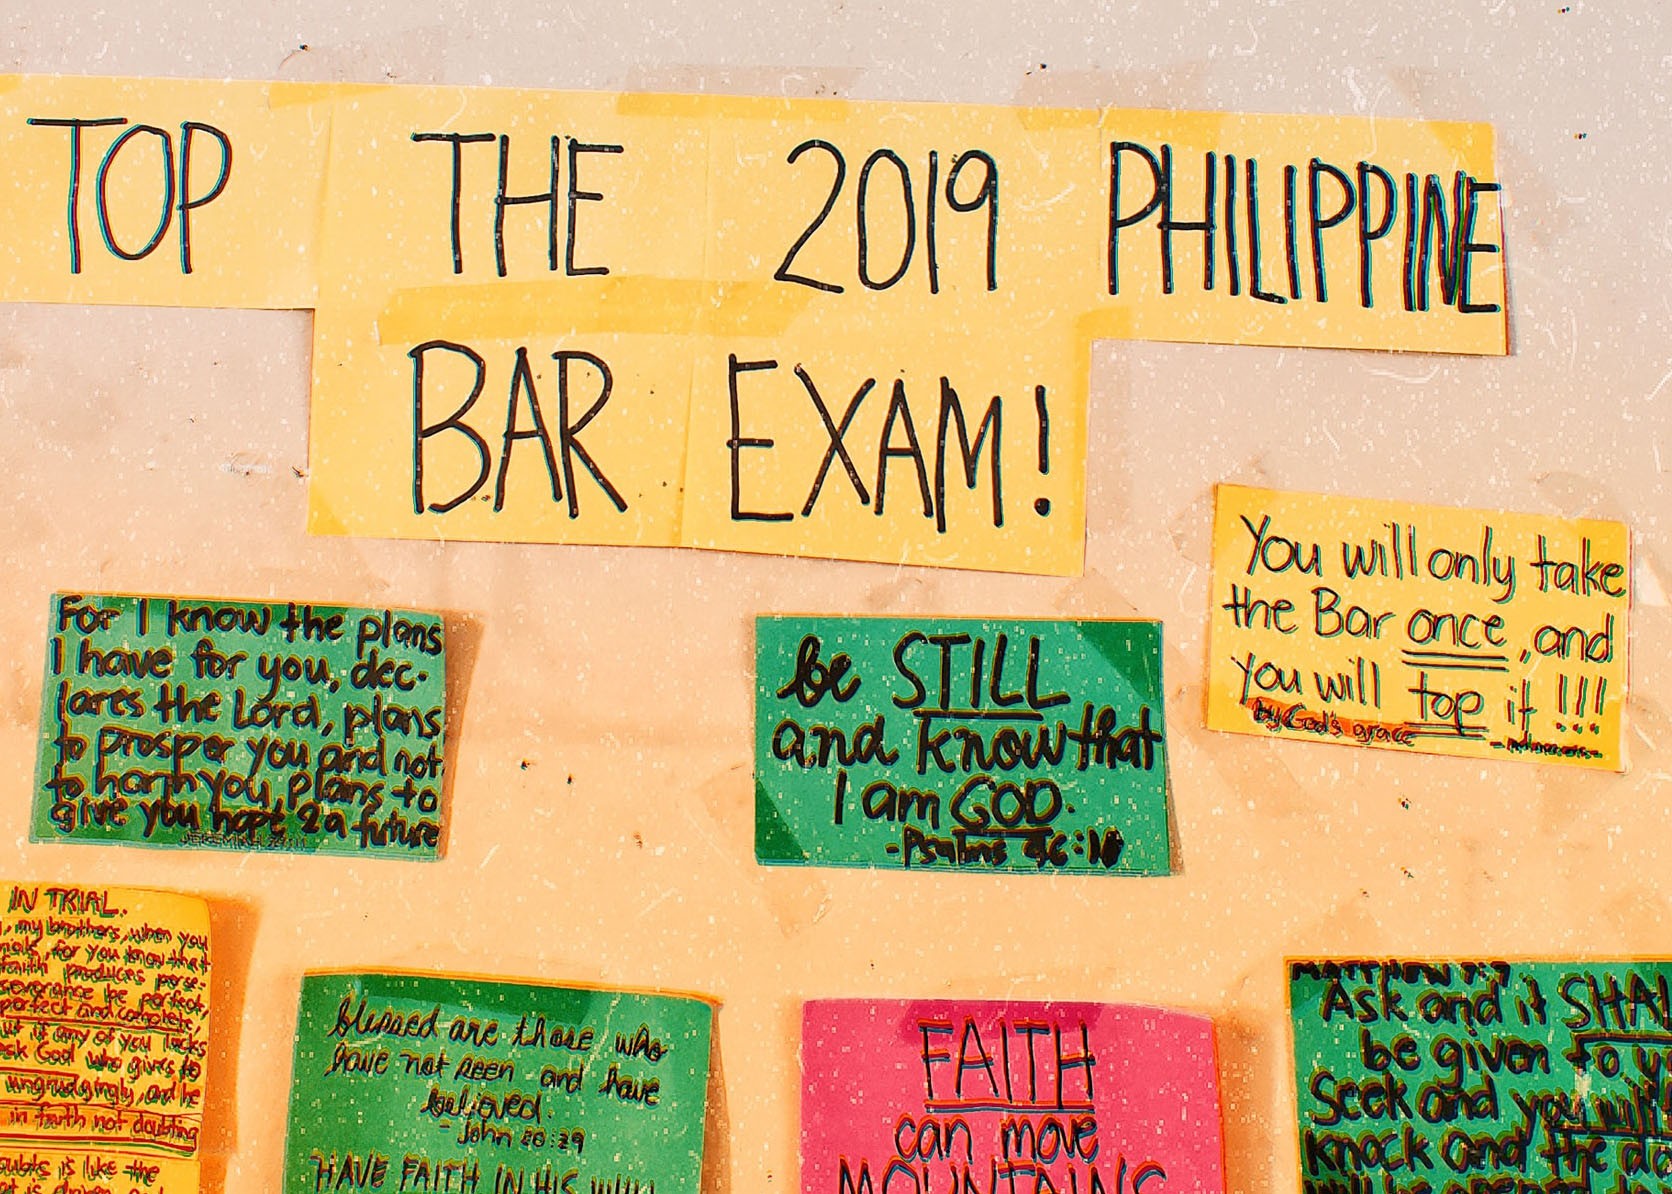 TOP THE 2019 PHILIPPINE
BAR EXAM!
You will only take
the Bar once, and
you will top it !!!
by God's grace
For I know the plans
I have for you, dec-
lares the Lord, plans
to prosper you and not
to harm you plans to
give you hope & a future
JEREMIAH 29:11
be STILL
and know that
I am GOD.
-Psalms 46:10
IN TRIAL.
, my brothers, when you
for you know that
faith produces perse-
severance be perfect,
perfect and complete,
but if any of you lacks
ask God who gives to
ungrudgingly, and he
in faith not doubting
doubts is like the
blessed are those who
have not seen and have
believed.
- John 20:29
HAVE FAITH IN HIS WILL
FAITH
can move
MOUNTAINS
MATTHEW 7:7
Ask and it SHAL
be given to y
Seek and you will
knock and the do